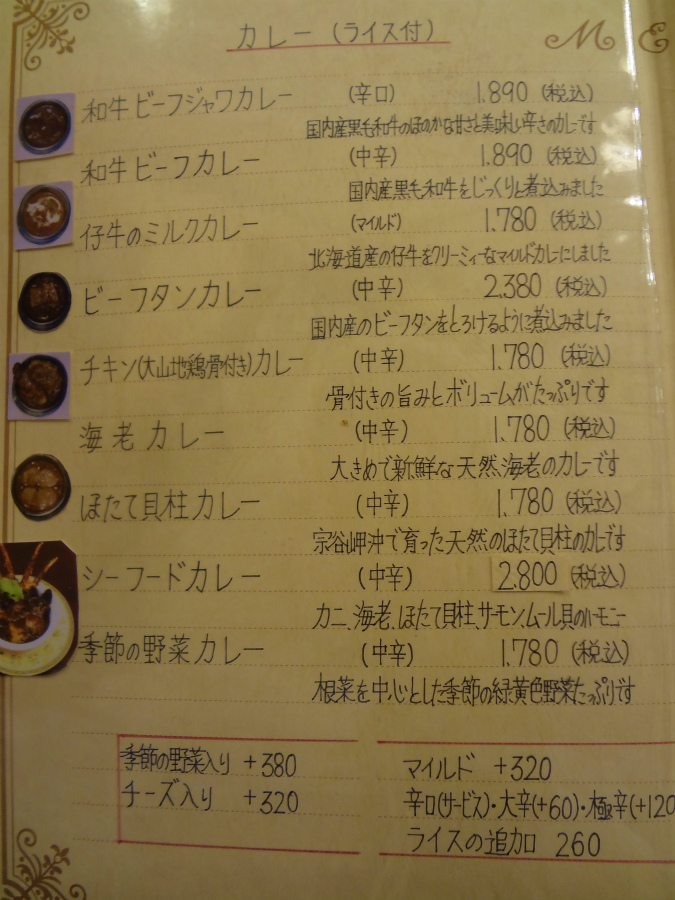 カレー (ライス付)
M E
和牛ビーフジャワカレー (辛口) 1.890 (税込)
国内産黒毛和牛のほのかな甘さと美味しい辛さのカレーです
和牛ビーフカレー (中辛) 1.890 (税込)
国内産黒毛和牛をじっくりと煮込みました
仔牛のミルクカレー (マイルド) 1.780 (税込)
北海道産の仔牛をクリーミィーなマイルドカレーにしました
ビーフタンカレー (中辛) 2.380 (税込)
国内産のビーフタンをとろけるように煮込みました
チキン(大山地鶏骨付き)カレー (中辛) 1.780 (税込)
骨付きの旨みとボリュームがたっぷりです
海老カレー (中辛) 1.780 (税込)
大きめで新鮮な天然海老のカレーです
ほたて貝柱カレー (中辛) 1.780 (税込)
宗谷岬沖で育った天然のほたて貝柱のカレーです
シーフードカレー (中辛) 2.800 (税込)
カニ、海老、ほたて貝柱、サーモン、ムール貝のハーモニー
季節の野菜カレー (中辛) 1.780 (税込)
根菜を中心とした季節の緑黄色野菜たっぷりです
季節の野菜入り +380
チーズ入り +320
マイルド +320
辛口(サービス)・大辛(+60)・極辛(+120
ライスの追加 260